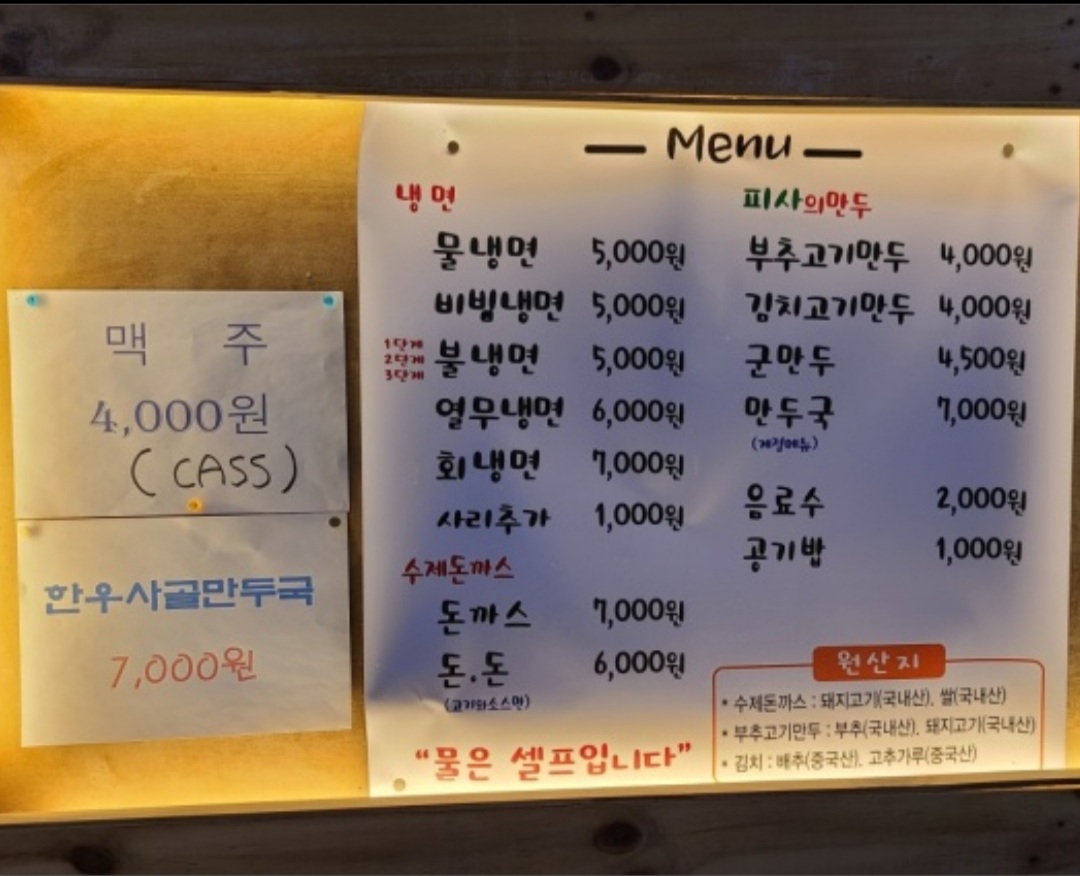 맥 주
4,000원
(CASS)
한우사골만두국
7,000원
Menu
냉면
물냉면 5,000원
비빔냉면 5,000원
1단계
2단계
3단계
불냉면 5,000원
열무냉면 6,000원
회냉면 7,000원
사리추가 1,000원
수제돈까스
돈까스 7,000원
돈.돈 6,000원
(고기와소스만)
"물은 셀프입니다"
피사의만두
부추고기만두 4,000원
김치고기만두 4,000원
군만두 4,500원
만두국 7,000원
(계절메뉴)
음료수 2,000원
공기밥 1,000원
원산지
• 수제돈까스 : 돼지고기(국내산), 쌀(국내산)
• 부추고기만두 : 부추(국내산), 돼지고기(국내산)
• 김치 : 배추(중국산), 고추가루(중국산)